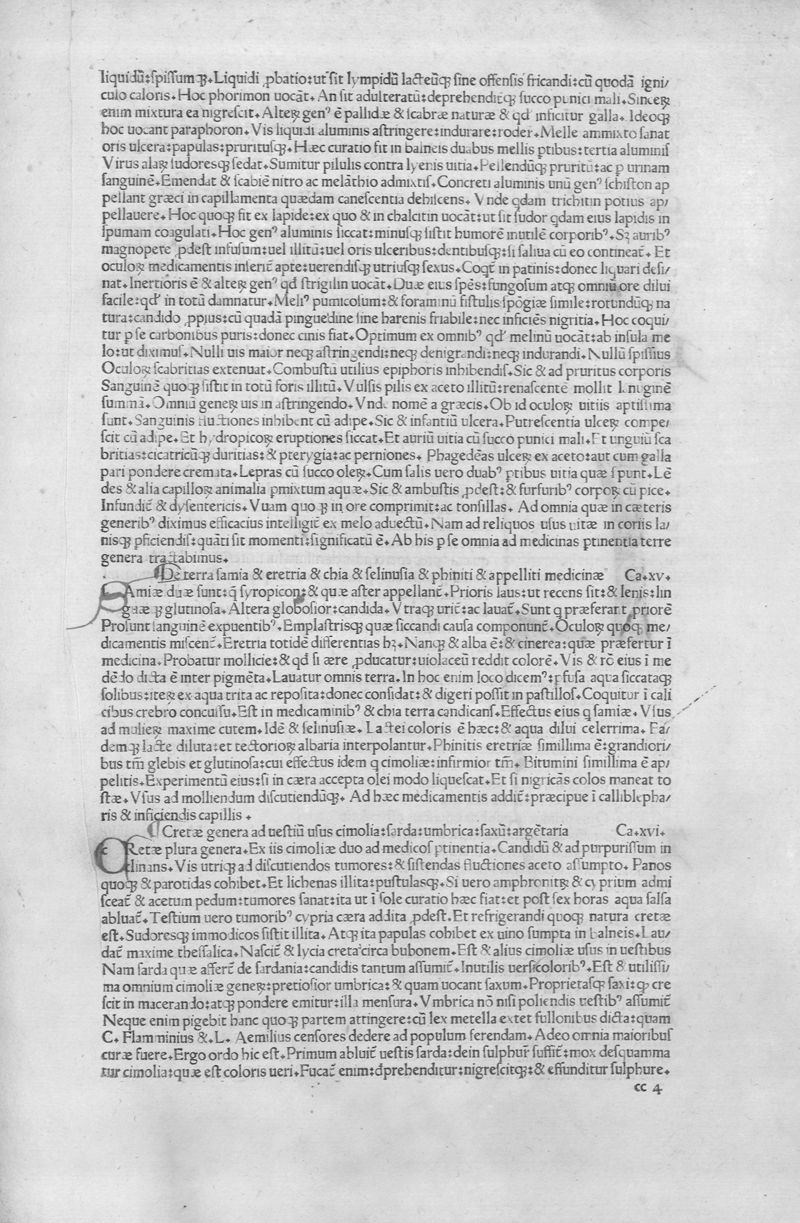 liquidũ:spissumqꝫ. Liquidi ꝓbatio: ut sit lympidũ lacteũqꝫ sine offensis fricandi: cũ quodã igni/
culo caloris. Hoc phorimon uocãt. An sit adulteratũ: deprehendit̃qꝫ succo punici mali. Sinceꝝ
enim mixtura ea nigrescit. Alteꝝ genꝰ ẽ pallidæ & scabræ naturæ & qd inficitur galla. Ideoqꝫ
hoc uocant paraphoron. Vis liquidi aluminis astringere: indurare: roder. Melle ammixto sanat
oris ulcera: papulas: pruritusqꝫ. Hæc curatio fit in balneis duabus mellis ptibus: tertia aluminis
Virus alaꝝ sudoresqꝫ sedat. Sumitur pilulis contra lyenis uitia. Pellendũqꝫ pruritũ: ac p urinam
sanguinẽ. Emendat & scabiẽ nitro ac melãthio admixtis. Concreti aluminis unũ genꝰ schiston ap
pellant græci in capillamenta quædam canescentia dehiscens. Vnde qdam trichitin potius ap/
pellauere. Hoc quoqꝫ fit ex lapide: ex quo & in chalcitin uocãt: ut sit sudor qdam eius lapidis in
spumam coagulati. Hoc genꝰ aluminis siccat: minusqꝫ sistit humorẽ inutilẽ corporibꝰ. Sꝫ auribꝰ
magnopere ꝓdest infusum: uel illitũ: uel oris ulceribus: dentibusqꝫ: si saliua cũ eo contineat̃. Et
oculoꝝ medicamentis inserit̃ apte: uerendisqꝫ utriusqꝫ sexus. Coqt̃ in patinis: donec liquari desi/
nat. Inertioris ẽ & alteꝝ genꝰ qd strigilin uocãt. Duæ eius spẽs: fungosum atqꝫ omni uore dilui
facile: qdʼ in totũ damnatur. Meliꝰ pumicosum: & foraminũ fistulis spõgiæ simile: rotundũqꝫ na
tura: candido ꝓpius: cũ quadã pinguedine sine harenis friabile: nec inficiẽs nigritia. Hoc coqui/
tur p se carbonibus puris: donec cinis fiat. Optimum ex omnibꝰ qdʼ melinũ uocãt: ab insula me
lo: ut diximus. Nulli uis maior neqꝫ astringendi: neqꝫ denigrandi: neqꝫ indurandi. Nullũ spissius
Oculoꝝ scabritias extenuat. Combustũ utilius epiphoris inhibendis. Sic & ad pruritus corporis
Sanguinẽ quoqꝫ sistit in totũ foris illitũ. Vulsis pilis ex aceto illitũ: renascentẽ mollit lanuginẽ
summã. Omniũ geneꝝ uis in astringendo. Vnde nomẽ a græcis. Ob id oculoꝝ uitiis aptissima
sunt. Sanguinis fluctiones inhibent cũ adipe. Sic & infantiũ ulcera. Putrescentia ulceꝝ compe/
scit cũ adipe. Et hydropicoꝝ eruptiones siccat. Et auriũ uitia cũ succo punici mali. Et unguiũ sca
britias: cicatricũqꝫ duritias: & pterygia: ac perniones. Phagedẽas ulceꝝ ex aceto: aut cum galla
pari pondere cremata. Lepras cũ succo oleꝝ. Cum salis uero duabꝰ ptibus uitia quæ spunt. Lẽ
des & alia capilloꝝ animalia pmixtum aquæ. Sic & ambustis ꝓdest: & furfuribꝰ corpoꝝ cũ pice.
Infundit̃ & dysentericis. Vuam quoqꝫ in ore comprimit: ac tonsillas. Ad omnia quæ in cæteris
generibꝰ diximus efficacius intelligit̃ ex melo aduectũ. Nam ad reliquos usus uitæ in coriis la/
nisqꝫ pficiendis: quãti sit momenti: significatũ ẽ. Ab his p se omnia ad medicinas ptinentia terre
genera tractabimus.
De terra samia & eretria & chia & selinusia & phiniti & appelliti medicinæ Ca. xv.
SAmiæ duæ sunt: q̃ syropicon: & quæ aster appellant̃. Prioris laus: ut recens sit: & lenis: lin
guæ qꝫ glutinosa. Altera globosior: candida. Vtraqꝫ urit̃: ac lauat̃. Sunt q præferãt priorẽ
Prosunt sanguinẽ expuentibꝰ. Emplastrisqꝫ quæ siccandi causa componunt̃. Oculoꝝ quoqꝫ me/
dicamentis miscent̃. Eretria totidẽ differentias hꝫ. Nanqꝫ & alba ẽ: & cinerea: quæ præfertur ĩ
medicina. Probatur mollicie: & qd si ære ꝓducatur: uiolaceũ reddit colorẽ. Vis & rõ eius ĩ me
dẽdo dicta ẽ inter pigmẽta. Lauatur omnis terra. In hoc enim loco dicemꝰ: pfusa aqua siccataqꝫ
solibus: iteꝝ ex aqua trita ac reposita: donec considat: & digeri possit in pastillos. Coquitur ĩ cali
cibus crebro concussu. Est in medicaminibꝰ & chia terra candicans. Effectus eius q samiæ. Vsus
ad mulieꝝ maxime cutem. Idẽ & selinusiæ. Lactei coloris ẽ hæc: & aqua dilui celerrima. Ea/
demqꝫ lacte diluta: et tectorioꝝ albaria interpolantur. Phinitis eretriæ simillima ẽ: grandiori/
bus tm̃ glebis et glutinosa: cui effectus idem q cimoliæ: infirmior tm̃. Bitumini simillima ẽ ap/
pelitis. Experimentũ eius: si in cæra accepta olei modo liquescat. Et si nigricãs colos maneat to
stæ. Vsus ad molliendum discutiendũqꝫ. Ad hæc medicamentis addit̃: præcipue ĩ calliblepha/
ris & inficiendis capillis.
Cretæ genera ad uestiũ usus cimolia: sarda: umbrica: saxũ: argẽtaria Ca. xvi.
CRetæ plura genera. Ex iis cimoliæ duo ad medicos ptinentia. Candidũ & ad purpurissum in
clinans. Vis utriqꝫ ad discutiendos tumores: & sistendas fluctiones aceto assumpto. Panos
quoqꝫ & parotidas cohibet. Et lichenas illita: pustulasqꝫ. Si uero amphronitꝝ: & cyprium admi
sceat̃ & acetum pedum: tumores sanat: ita ut ĩ sole curatio hæc fiat: et post sex horas aqua salsa
abluat̃. Testium uero tumoribꝰ cypria cæra addita ꝓdest. Et refrigerandi quoqꝫ natura cretæ
est. Sudoresqꝫ immodicos sistit illita. Atqꝫ ita papulas cohibet ex uino sumpta in balneis. Lau/
dat̃ maxime thessalica. Nascit̃ & lycia creta circa bubonem. Est & alius cimoliæ usus in uestibus
Nam sarda quæ affert̃ de sardania: candidis tantum assumit̃. Inutilis uersicoloribꝰ. Est & utilissi/
ma omnium cimoliæ geneꝝ: pretiosior umbrica: & quam uocant saxum. Proprietasqꝫ saxi: qꝫ cre
scit in macerando: atqꝫ pondere emitur: illa mensura. Vmbrica nõ nisi poliendis uestibꝰ assumit̃
Neque enim pigebit hanc quoqꝫ partem attingere: cũ lex metella extet fullonibus dicta: quam
C. Flamminius & .L. Aemilius censores dedere ad populum ferendam. Adeo omnia maioribus
curæ fuere. Ergo ordo hic est. Primum abluit̃ uestis sarda: dein sulphur̃ suffit̃: mox desquamma
tur cimolia: quæ est coloris ueri. Fucat̃ enim: dprehenditur: nigrescitqꝫ: & effunditur sulphure.
cc 4